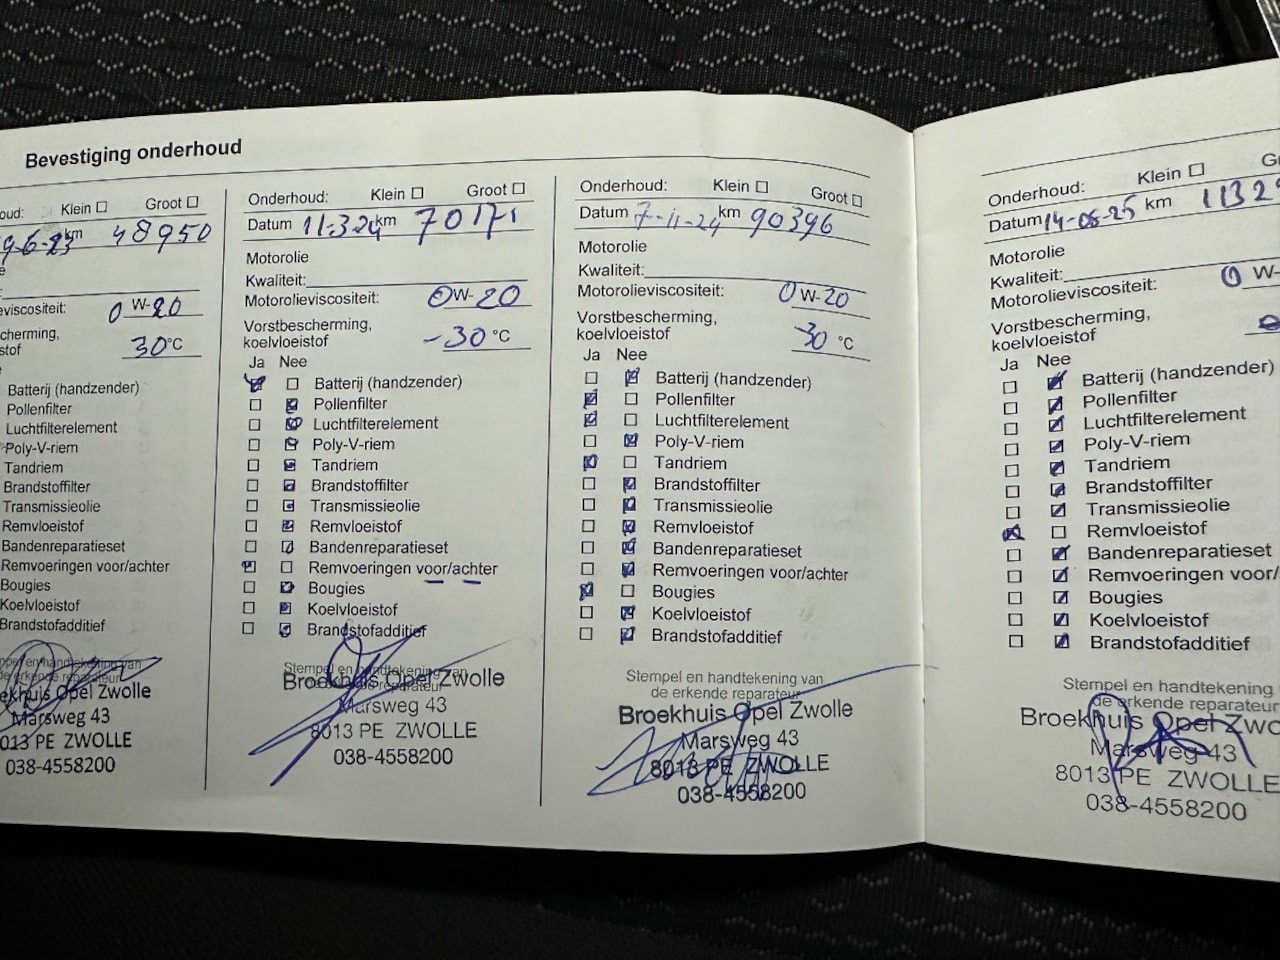 Bevestiging onderhoud
oud: Klein ☐ Groot ☐
km 48950
eviscositeit: 0 W-20
cherming,
stof 30 °C
Batterij (handzender)
Pollenfilter
Luchtfilterelement
Poly-V-riem
Tandriem
Brandstoffilter
Transmissieolie
Remvloeistof
Bandenreparatieset
Remvoeringen voor/achter
Bougies
Koelvloeistof
Brandstofadditief
Stempel en handtekening van
de erkende reparateur
ekhuis Opel Zwolle
Marsweg 43
013 PE ZWOLLE
038-4558200
Onderhoud: Klein ☐ Groot ☐
Datum 11-3-24 km 70171
Motorolie
Kwaliteit:
Motorolieviscositeit: 0 W-20
Vorstbescherming,
koelvloeistof -30 °C
Ja Nee
Batterij (handzender)
Pollenfilter
Luchtfilterelement
Poly-V-riem
Tandriem
Brandstoffilter
Transmissieolie
Remvloeistof
Bandenreparatieset
Remvoeringen voor/achter
Bougies
Koelvloeistof
Brandstofadditief
Stempel en handtekening van
de erkende reparateur
Broekhuis Opel Zwolle
Marsweg 43
8013 PE ZWOLLE
038-4558200
Onderhoud: Klein ☐ Groot ☐
Datum 7-11-24 km 90396
Motorolie
Kwaliteit:
Motorolieviscositeit: 0 W-20
Vorstbescherming,
koelvloeistof 30 °C
Ja Nee
Batterij (handzender)
Pollenfilter
Luchtfilterelement
Poly-V-riem
Tandriem
Brandstoffilter
Transmissieolie
Remvloeistof
Bandenreparatieset
Remvoeringen voor/achter
Bougies
Koelvloeistof
Brandstofadditief
Stempel en handtekening van
de erkende reparateur
Broekhuis Opel Zwolle
Marsweg 43
8013 PE ZWOLLE
038-4558200
Onderhoud: Klein ☐ G
Datum 14-08-25 km 1132
Motorolie
Kwaliteit:
Motorolieviscositeit: 0 W-
Vorstbescherming,
koelvloeistof
Ja Nee
Batterij (handzender)
Pollenfilter
Luchtfilterelement
Poly-V-riem
Tandriem
Brandstoffilter
Transmissieolie
Remvloeistof
Bandenreparatieset
Remvoeringen voor/
Bougies
Koelvloeistof
Brandstofadditief
Stempel en handtekening
de erkende reparateur
Broekhuis Opel Zwo
Marsweg 43
8013 PE ZWOLLE
038-4558200